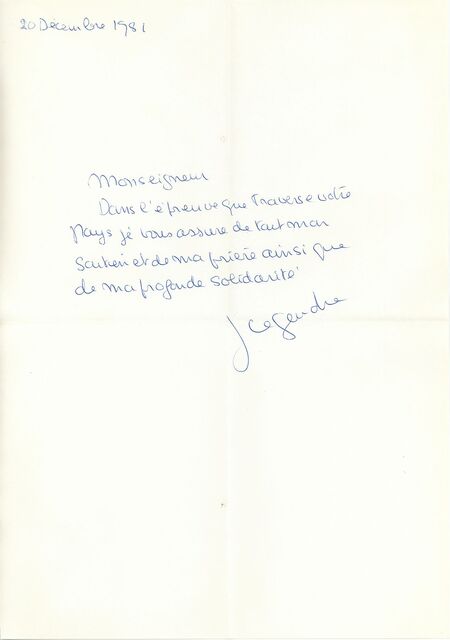 20 Décembre 1981
Monseigneur
Dans l'épreuve que traverse votre
Pays je vous assure de tout mon
soutien et de ma prière ainsi que
de ma profonde solidarité